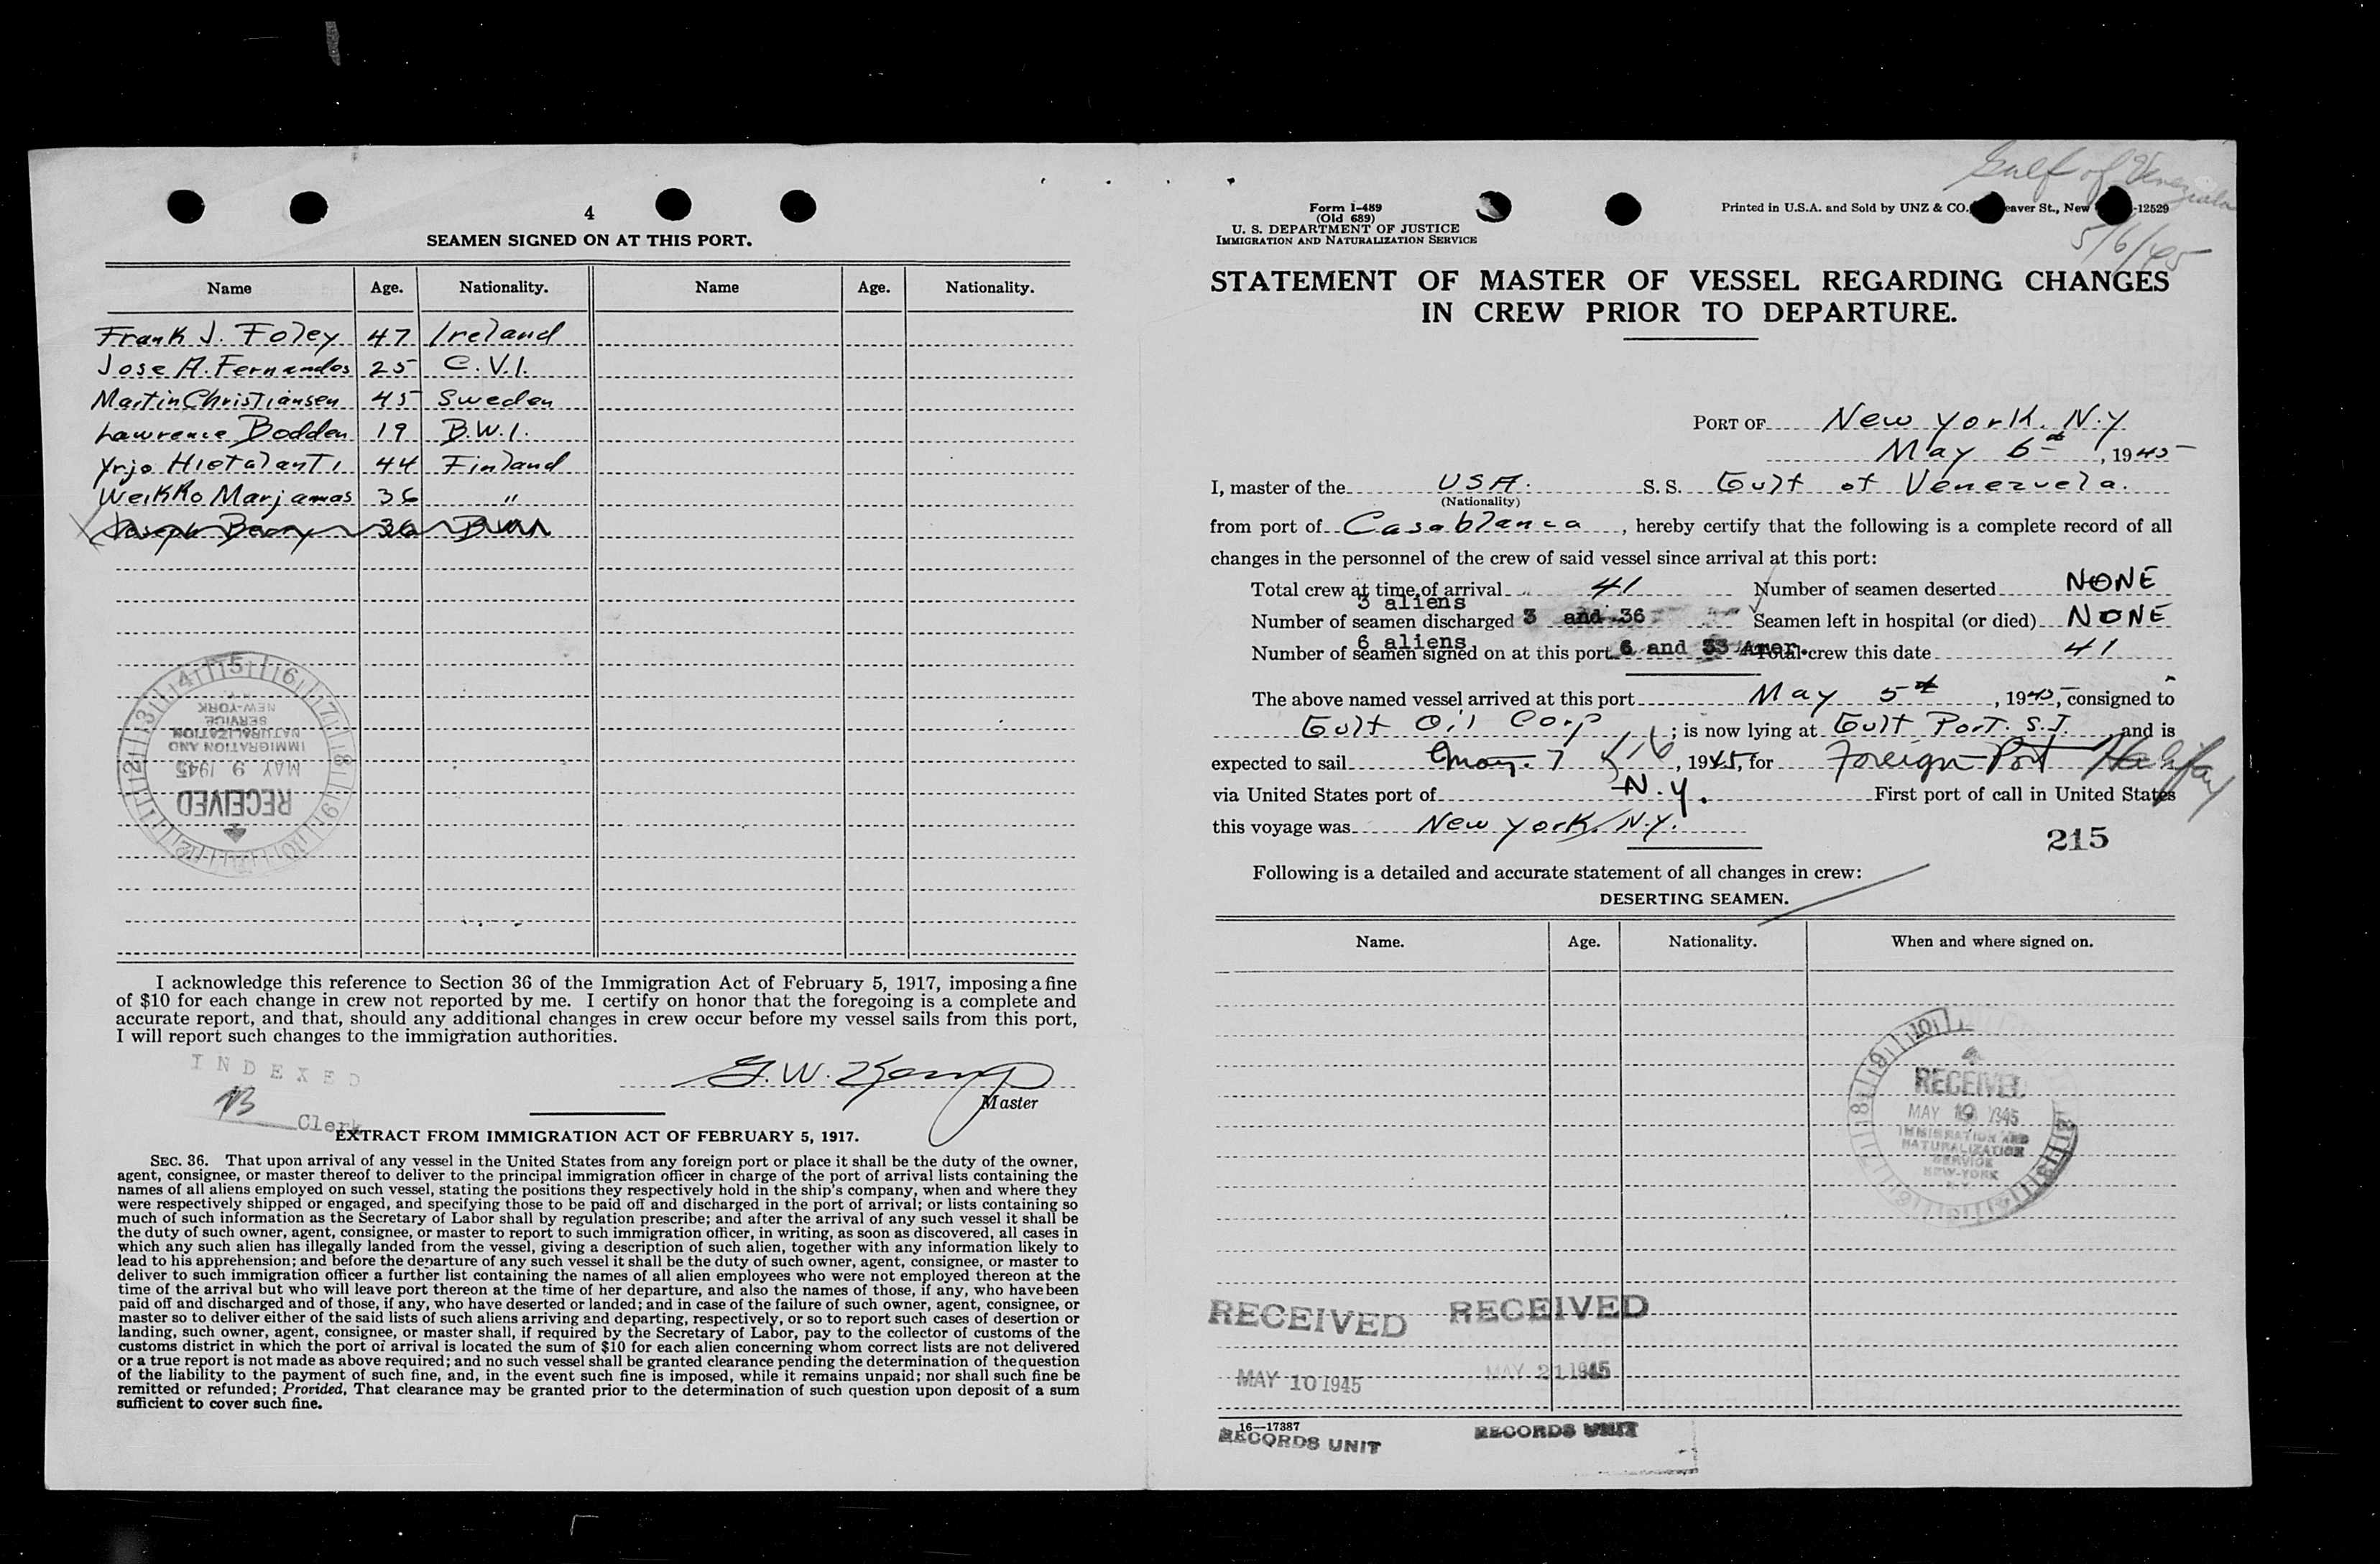 4
SEAMEN SIGNED ON AT THIS PORT.
Name Age. Nationality. Name Age. Nationality.
Frank J. Foley 47 Ireland
Jose A. Fernandos 25 C.V.I.
Martin Christiansen 45 Sweden
Lawrence Bodden 19 B.W.I.
Yrjo Hietalanti 44 Finland
Weikko Marjamas 36 "
Joseph 36
5 6 7 8 9 10 11 12 1 2 3 4
NEW-YORK
SERVICE
NATURALIZATION
IMMIGRATION AND
MAY 9 1945
RECEIVED
I acknowledge this reference to Section 36 of the Immigration Act of February 5, 1917, imposing a fine
of $10 for each change in crew not reported by me. I certify on honor that the foregoing is a complete and
accurate report, and that, should any additional changes in crew occur before my vessel sails from this port,
I will report such changes to the immigration authorities.
INDEXED
Clerk
G. W.
Master
EXTRACT FROM IMMIGRATION ACT OF FEBRUARY 5, 1917.
SEC. 36. That upon arrival of any vessel in the United States from any foreign port or place it shall be the duty of the owner,
agent, consignee, or master thereof to deliver to the principal immigration officer in charge of the port of arrival lists containing the
names of all aliens employed on such vessel, stating the positions they respectively hold in the ship's company, when and where they
were respectively shipped or engaged, and specifying those to be paid off and discharged in the port of arrival; or lists containing so
much of such information as the Secretary of Labor shall by regulation prescribe; and after the arrival of any such vessel it shall be
the duty of such owner, agent, consignee, or master to report to such immigration officer, in writing, as soon as discovered, all cases in
which any such alien has illegally landed from the vessel, giving a description of such alien, together with any information likely to
lead to his apprehension; and before the departure of any such vessel it shall be the duty of such owner, agent, consignee, or master to
deliver to such immigration officer a further list containing the names of all alien employees who were not employed thereon at the
time of the arrival but who will leave port thereon at the time of her departure, and also the names of those, if any, who have been
paid off and discharged and of those, if any, who have deserted or landed; and in case of the failure of such owner, agent, consignee, or
master so to deliver either of the said lists of such aliens arriving and departing, respectively, or so to report such cases of desertion or
landing, such owner, agent, consignee, or master shall, if required by the Secretary of Labor, pay to the collector of customs of the
customs district in which the port of arrival is located the sum of $10 for each alien concerning whom correct lists are not delivered
or a true report is not made as above required; and no such vessel shall be granted clearance pending the determination of the question
of the liability to the payment of such fine, and, in the event such fine is imposed, while it remains unpaid; nor shall such fine be
remitted or refunded; Provided, That clearance may be granted prior to the determination of such question upon deposit of a sum
sufficient to cover such fine.
Gulf of Venezuela
5/6/45
Form I-489
(Old 689)
U. S. DEPARTMENT OF JUSTICE
IMMIGRATION AND NATURALIZATION SERVICE
Printed in U.S.A. and Sold by UNZ & CO. eaver St., New -12529
STATEMENT OF MASTER OF VESSEL REGARDING CHANGES
IN CREW PRIOR TO DEPARTURE.
PORT OF New York. N.Y.
May 6th, 1945
I, master of the USA. S. S. Gulf of Venezuela.
(Nationality)
from port of Casablanca, hereby certify that the following is a complete record of all
changes in the personnel of the crew of said vessel since arrival at this port:
Total crew at time of arrival 41 Number of seamen deserted NONE
3 aliens
Number of seamen discharged 3 and 36 Seamen left in hospital (or died) NONE
6 aliens
Number of seamen signed on at this port 6 and 33 Amer. Total crew this date 41
The above named vessel arrived at this port May 5th, 1945, consigned to
Gulf Oil Corp; is now lying at Gulf Port. S.I. and is
expected to sail May 7 5/16, 1945, for Foreign Port Halifax
via United States port of N.Y. First port of call in United States
this voyage was New York. N.Y.
215
Following is a detailed and accurate statement of all changes in crew:
DESERTING SEAMEN.
Name. Age. Nationality. When and where signed on.
RECEIVED
MAY 19 1945
IMMIGRATION AND
NATURALIZATION
SERVICE
NEW-YORK
RECEIVED RECEIVED
MAY 10 1945 MAY 21 1945
16—17387
RECORDS UNIT RECORDS UNIT